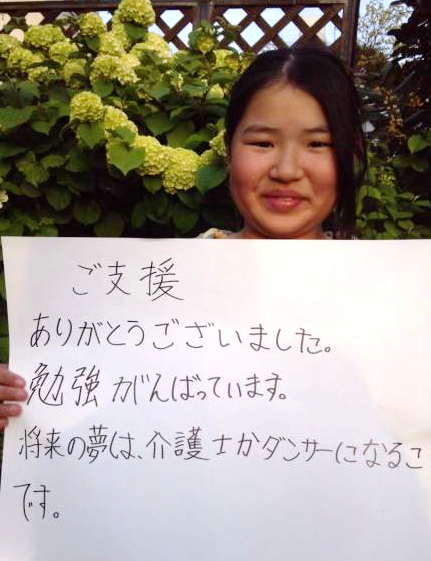 ご支援
ありがとうございました。
勉強がんばっています。
将来の夢は、介護士かダンサーになるこ
です。